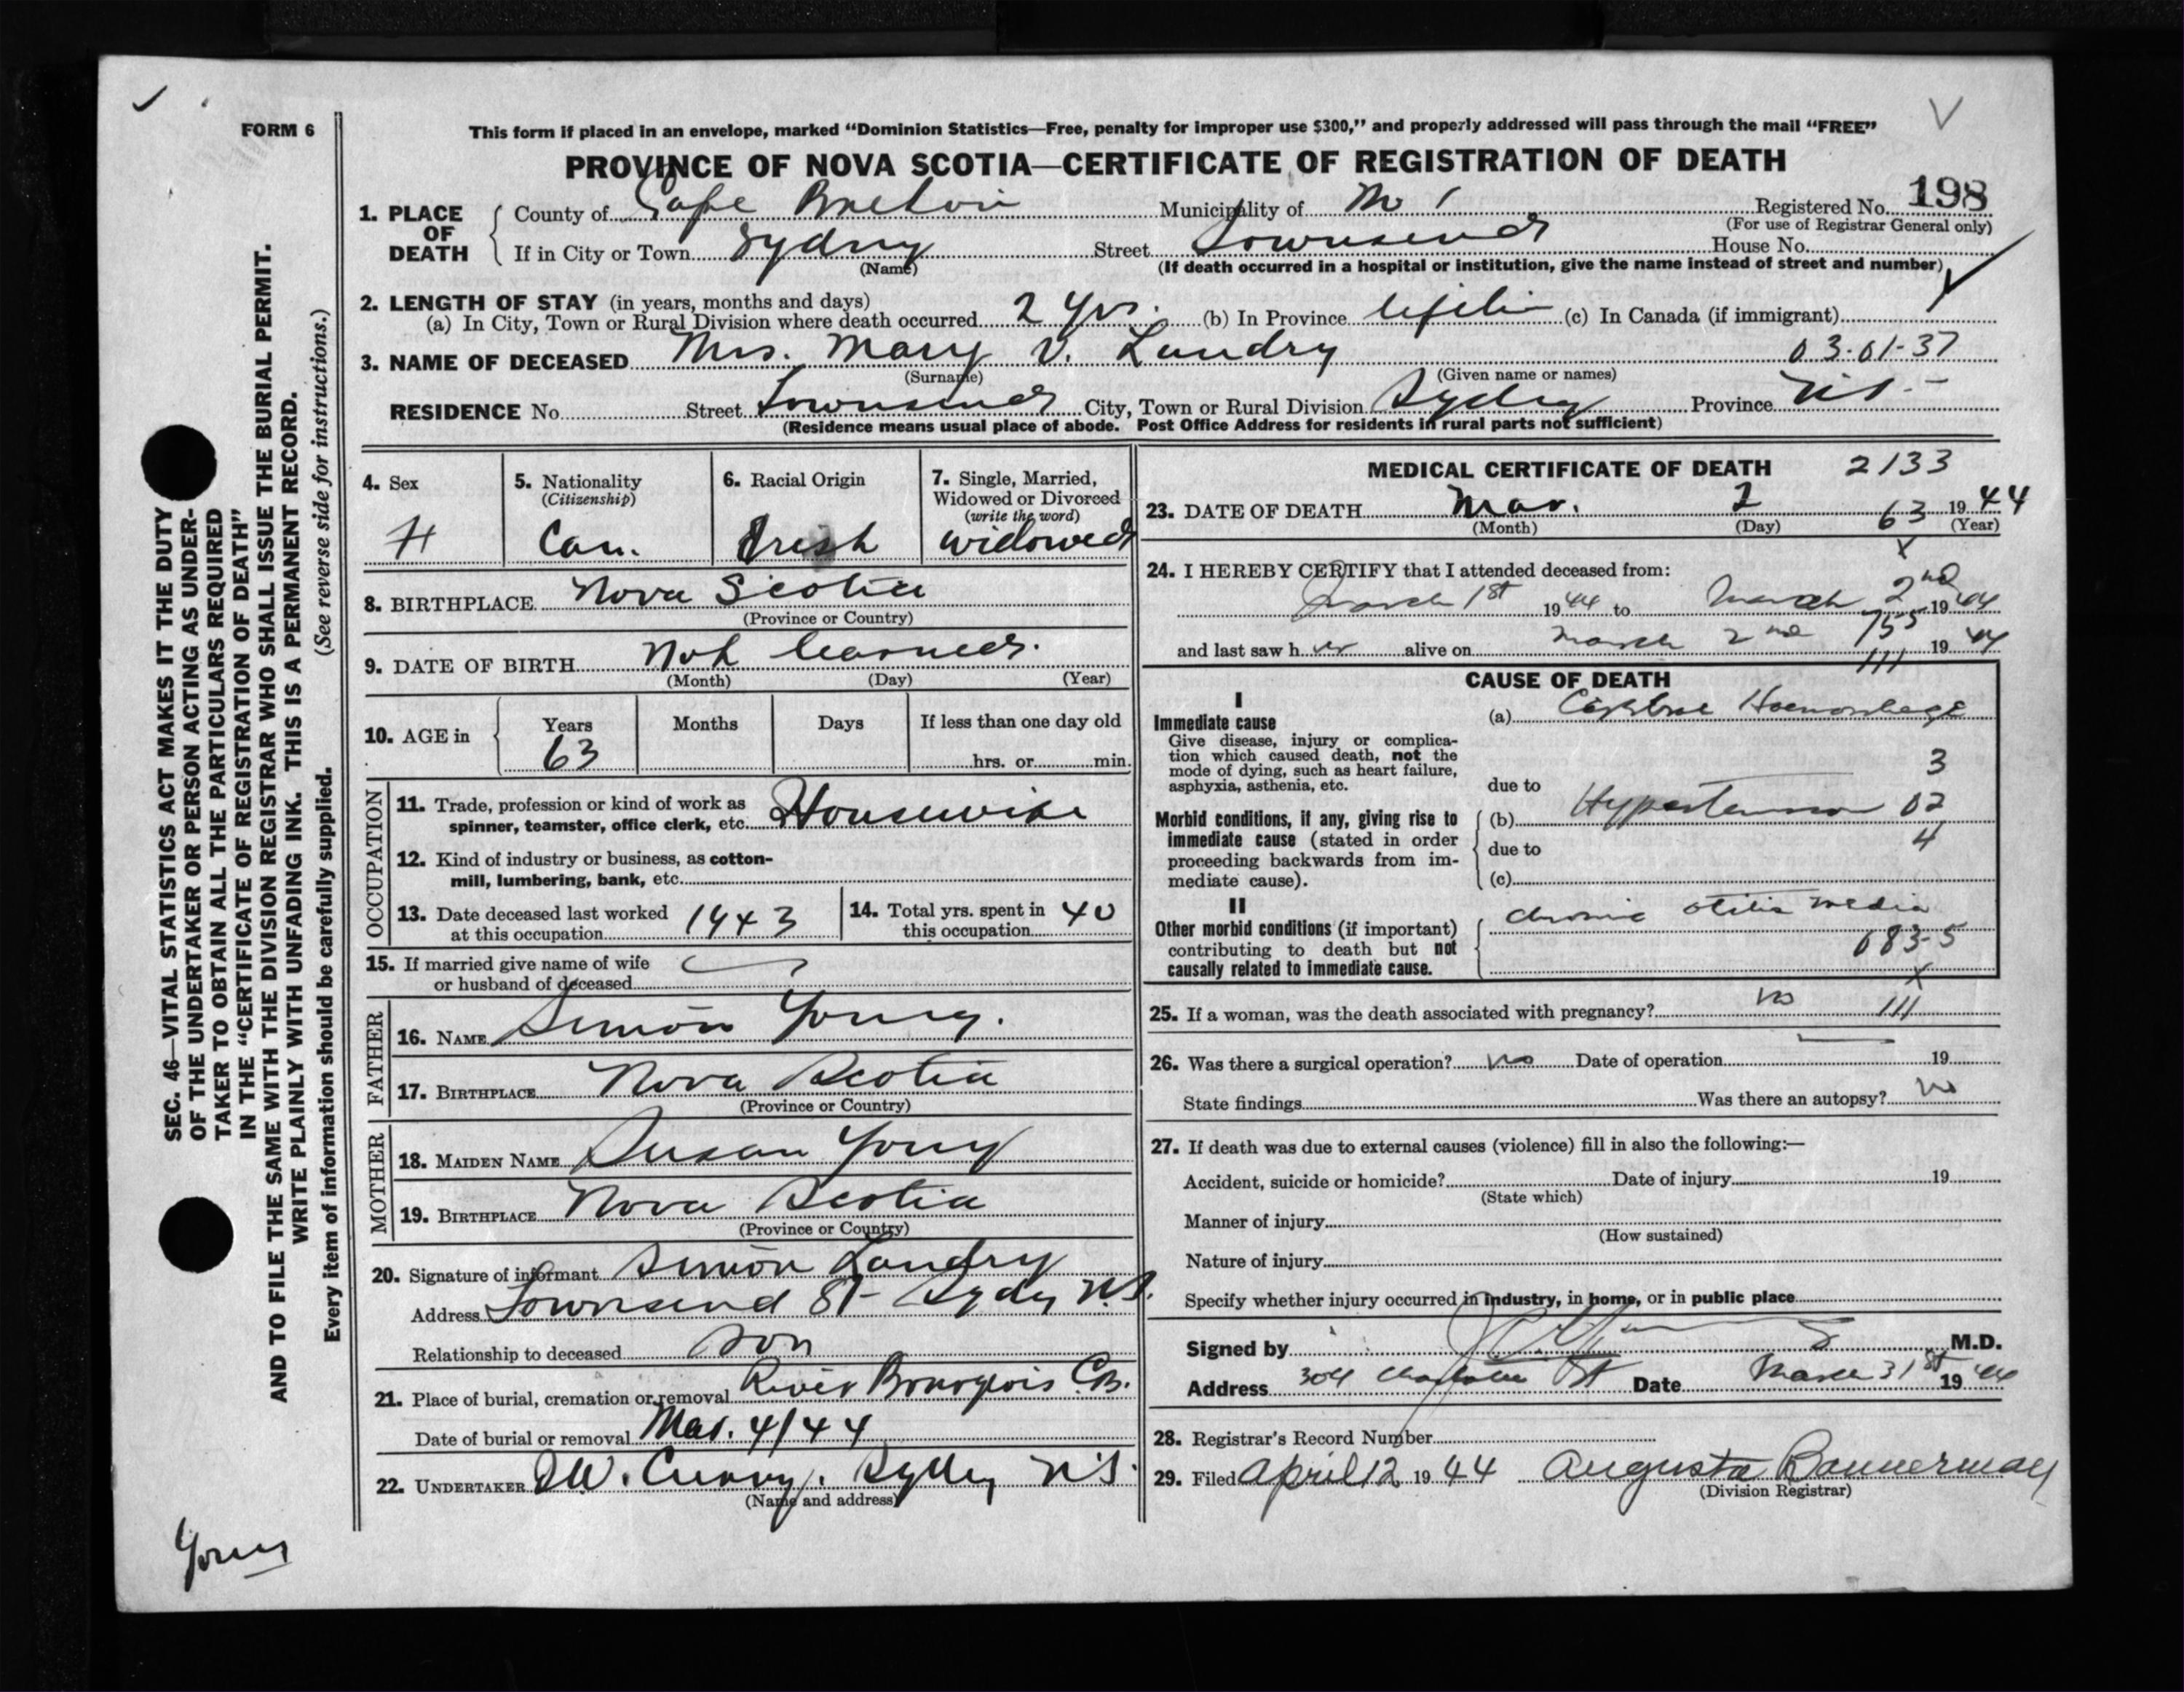 FORM 6
This form if placed in an envelope, marked “Dominion Statistics—Free, penalty for improper use $300,” and properly addressed will pass through the mail “FREE”
PROVINCE OF NOVA SCOTIA—CERTIFICATE OF REGISTRATION OF DEATH
198
1. PLACE OF DEATH County of Cape Breton Municipality of Registered No.
(For use of Registrar General only)
If in City or Town Sydney Street Townsend House No.
(Name) (If death occurred in a hospital or institution, give the name instead of street and number)
2. LENGTH OF STAY (in years, months and days)
(a) In City, Town or Rural Division where death occurred 2 yrs. (b) In Province (c) In Canada (if immigrant)
3. NAME OF DECEASED Mrs. Mary V. Landry 03-01-37
(Surname) (Given name or names)
RESIDENCE No. Street Townsend City, Town or Rural Division Sydney Province N.S.
(Residence means usual place of abode. Post Office Address for residents in rural parts not sufficient)
4. Sex F
5. Nationality (Citizenship) Can.
6. Racial Origin Irish
7. Single, Married, Widowed or Divorced (write the word) widowed
8. BIRTHPLACE Nova Scotia
(Province or Country)
9. DATE OF BIRTH Not learned.
(Month) (Day) (Year)
10. AGE in Years Months Days If less than one day old
63 hrs. or min.
OCCUPATION
11. Trade, profession or kind of work as
spinner, teamster, office clerk, etc. Housewife
12. Kind of industry or business, as cotton-
mill, lumbering, bank, etc.
13. Date deceased last worked
at this occupation 1943
14. Total yrs. spent in
this occupation 40
15. If married give name of wife
or husband of deceased
FATHER
16. NAME Simon Young.
17. BIRTHPLACE Nova Scotia
(Province or Country)
MOTHER
18. MAIDEN NAME Susan Young
19. BIRTHPLACE Nova Scotia
(Province or Country)
20. Signature of informant Simon Landry
Address Townsend St- Sydney N.S.
Relationship to deceased son
21. Place of burial, cremation or removal River Bourgeois C.B.
Date of burial or removal Mar. 4/44
22. UNDERTAKER Sydney N.S.
(Name and address)
MEDICAL CERTIFICATE OF DEATH 2133
23. DATE OF DEATH Mar. 2 63 1944
(Month) (Day) (Year)
24. I HEREBY CERTIFY that I attended deceased from:
March 1st 1944 to March 2nd 1944
and last saw her alive on March 2nd 1944
CAUSE OF DEATH
I
Immediate cause (a) Cerebral Haemorrhage
Give disease, injury or complica-
tion which caused death, not the
mode of dying, such as heart failure,
asphyxia, asthenia, etc.
3
due to
Morbid conditions, if any, giving rise to
immediate cause (stated in order
proceeding backwards from im-
mediate cause).
(b) Hypertension 02
due to 4
(c)
II
Other morbid conditions (if important)
contributing to death but not
causally related to immediate cause.
chronic otitis media
683-5
25. If a woman, was the death associated with pregnancy? no
26. Was there a surgical operation? no Date of operation 19
State findings Was there an autopsy? no
27. If death was due to external causes (violence) fill in also the following:—
Accident, suicide or homicide? Date of injury 19
(State which)
Manner of injury
(How sustained)
Nature of injury
Specify whether injury occurred in industry, in home, or in public place
Signed by M.D.
Address 304 Charlotte St Date March 31st 1944
28. Registrar's Record Number
29. Filed April 12 1944 Augusta Bannerman
(Division Registrar)
SEC. 46—VITAL STATISTICS ACT MAKES IT THE DUTY
OF THE UNDERTAKER OR PERSON ACTING AS UNDER-
TAKER TO OBTAIN ALL THE PARTICULARS REQUIRED
IN THE “CERTIFICATE OF REGISTRATION OF DEATH”
AND TO FILE THE SAME WITH THE DIVISION REGISTRAR WHO SHALL ISSUE THE BURIAL PERMIT.
WRITE PLAINLY WITH UNFADING INK. THIS IS A PERMANENT RECORD.
Every item of information should be carefully supplied. (See reverse side for instructions.)
Young